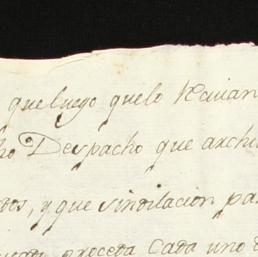 que luego quelo Reciban
ho Despacho que archi
dos, y que sindilacion pa
proceda Cada uno